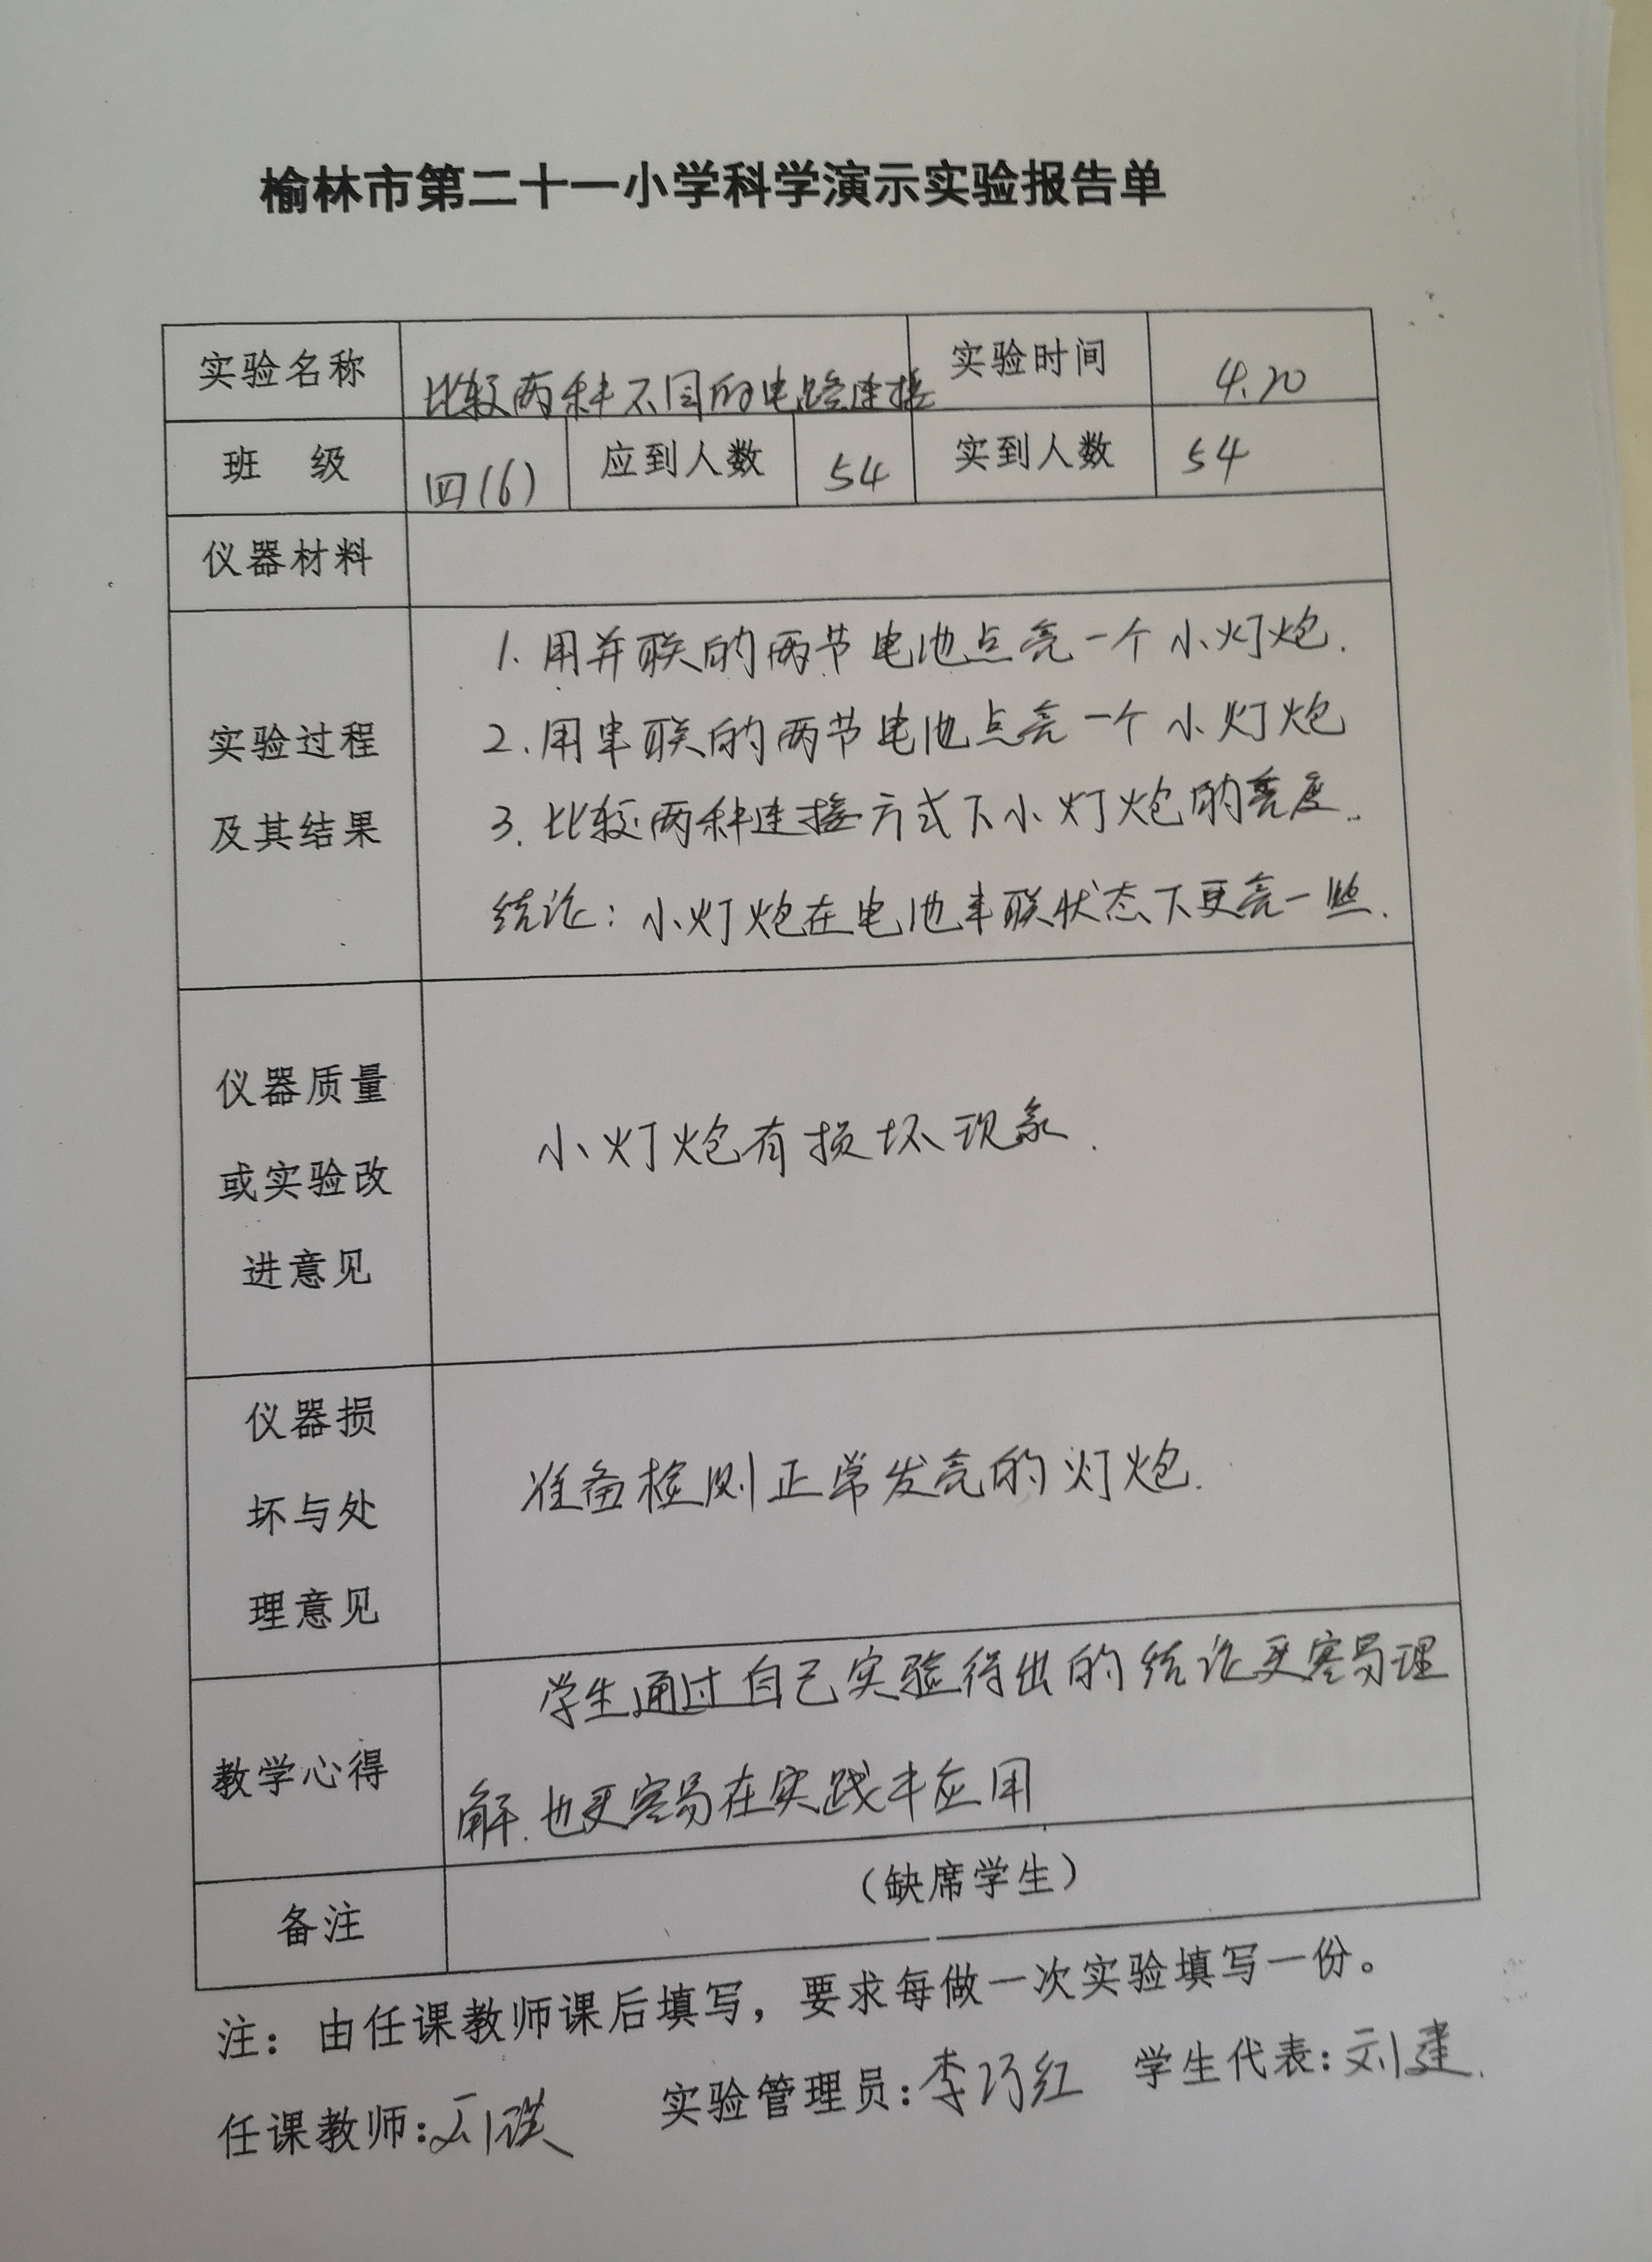 榆林市第二十一小学科学演示实验报告单
实验名称 比较两种不同的电路连接 实验时间 4.20
班 级 四(6) 应到人数 54 实到人数 54
仪器材料
实验过程
及其结果
1.用并联的两节电池点亮一个小灯炮.
2.用串联的两节电池点亮一个小灯炮
3.比较两种连接方式下小灯炮的亮度.
结论:小灯炮在电池串联状态下更亮一些.
仪器质量
或实验改
进意见
小灯炮有损坏现象.
仪器损
坏与处
理意见
准备检测正常发亮的灯炮.
教学心得
学生通过自己实验得出的结论更容易理
解.也更容易在实践中应用
备注 (缺席学生)
注:由任课教师课后填写,要求每做一次实验填写一份。
任课教师:刘 实验管理员:李巧红 学生代表:刘建